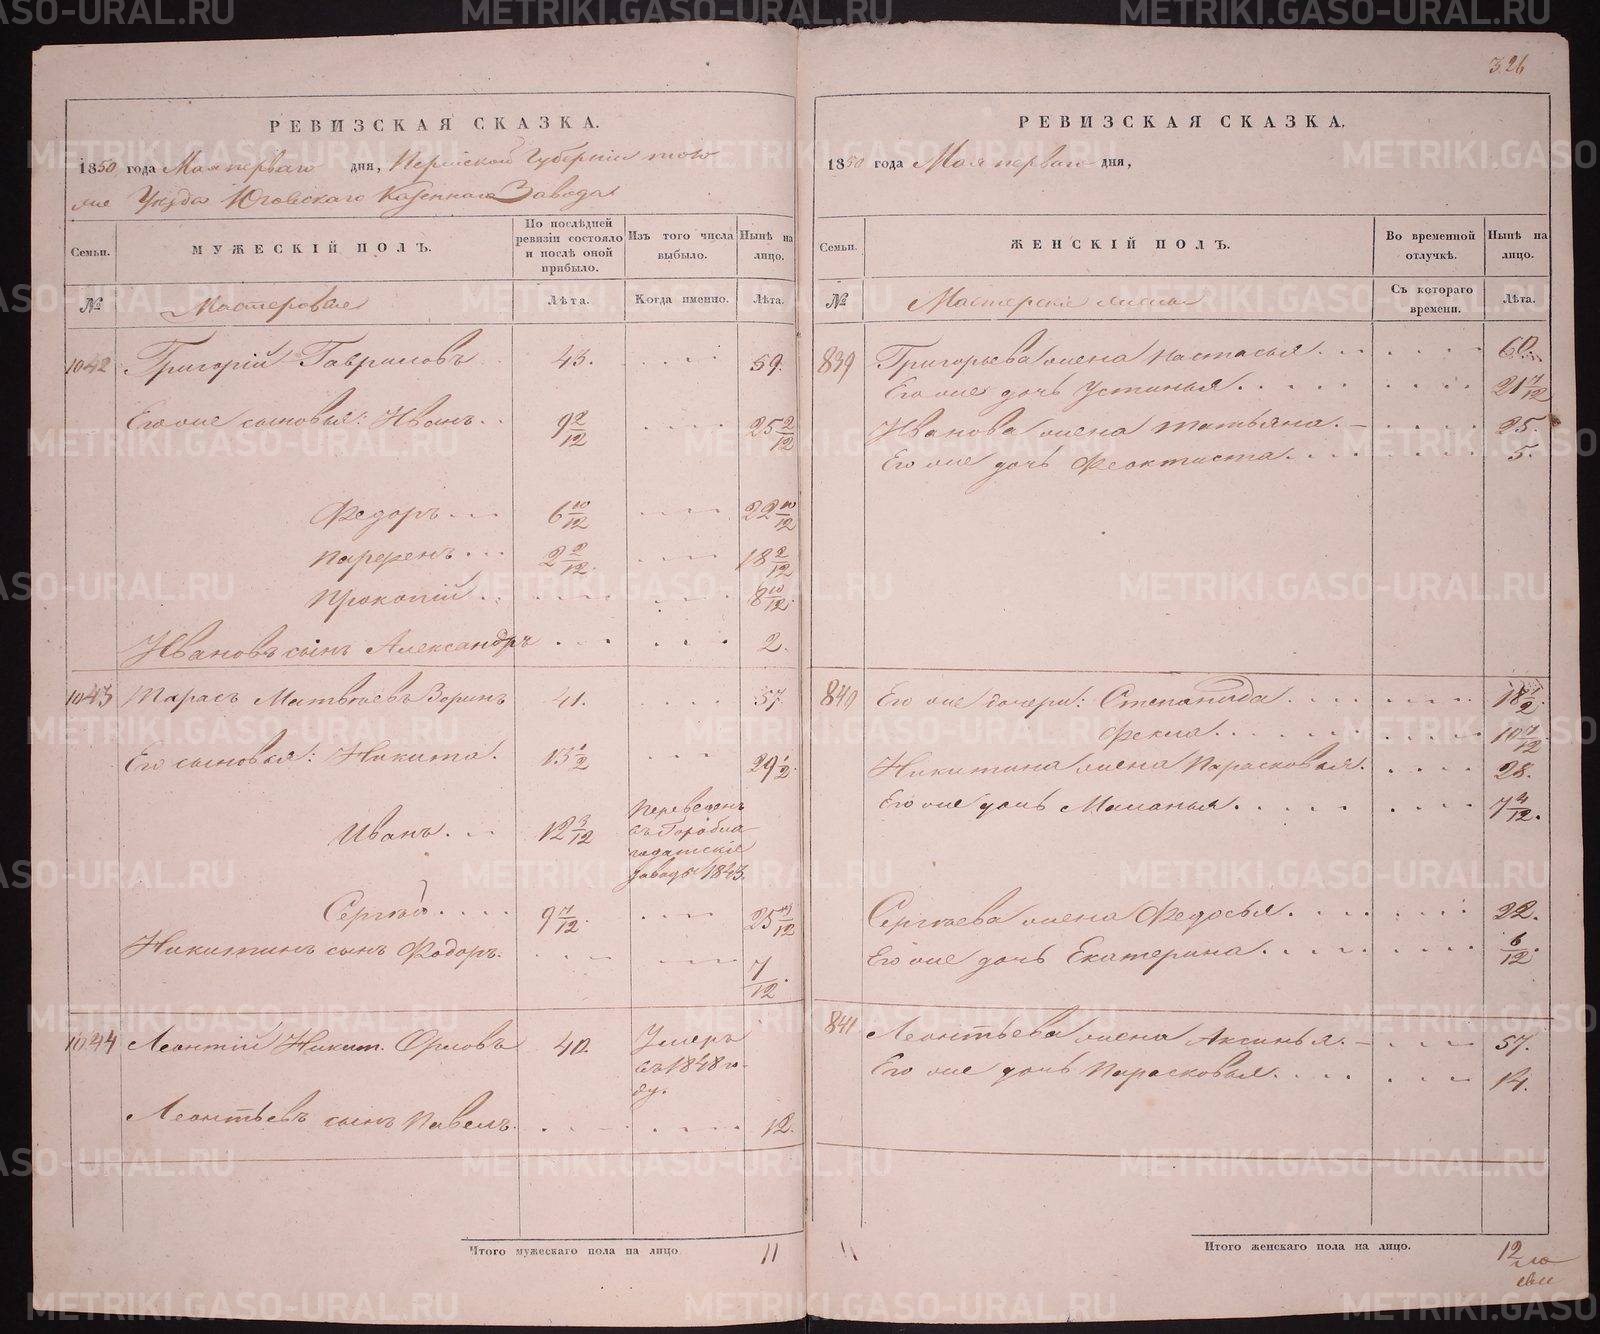 326
РЕВИЗСКАЯ СКАЗКА.
1850 года Мая перваго дня, Пермской Губернии тою
же Уезда Юговскаго Казеннаго Завода
Семьи. МУЖЕСКІЙ ПОЛЪ. По послѣдней ревизіи состояло и послѣ оной прибыло. Изъ того числа выбыло. Нынѣ на лицо.
№ Мастеровые Лѣта. Когда именно. Лѣта.
1042 Григорій Гавриловъ 43. 59.
Его же сыновья: Иванъ 9 2/12 25 2/12
Федоръ 6 10/12 22 10/12
Парфенъ 2 2/12 18 2/12
Прокопій 8 10/12
Ивановъ сынъ Александръ 2.
1043 Тарасъ Матвѣевъ Зоринъ 41. 57.
Его сыновья: Никита. 13 1/2 29 1/2
Иванъ 12 3/12 Переведенъ
въ Гороблагодатскіе
заводы 1843.
Сергѣй 9 7/12 25 7/12
Никитинъ сынъ Федоръ. 7/12
1044 Леонтій Никит. Орловъ 42 Умеръ
въ 1848 го-
ду.
Леонтьевъ сынъ Павелъ. 12.
Итого мужескаго пола на лицо 11
РЕВИЗСКАЯ СКАЗКА.
1850 года Мая перваго дня,
Семьи. ЖЕНСКІЙ ПОЛЪ. Во временной отлучкѣ. Нынѣ на лицо.
№ Мастерскіе жены Съ котораго времени. Лѣта.
839 Григорьева жена Настасья 60.
Его же дочь Устинья 21 7/12
Иванова жена Татьяна 25.
Его же дочь Феоктиста 5.
840 Его же дочери: Степанида 18 1/2
Фекла 10 7/12
Никитина жена Парасковья 28.
Его же дочь Маланья 7 4/12.
Сергѣева жена Федосья 22.
Его же дочь Екатерина 6/12
841 Леонтьева жена Аксинья 57.
Его же дочь Парасковья 14.
Итого женскаго пола на лицо. 12
METRIKI.GASO-URAL.RU